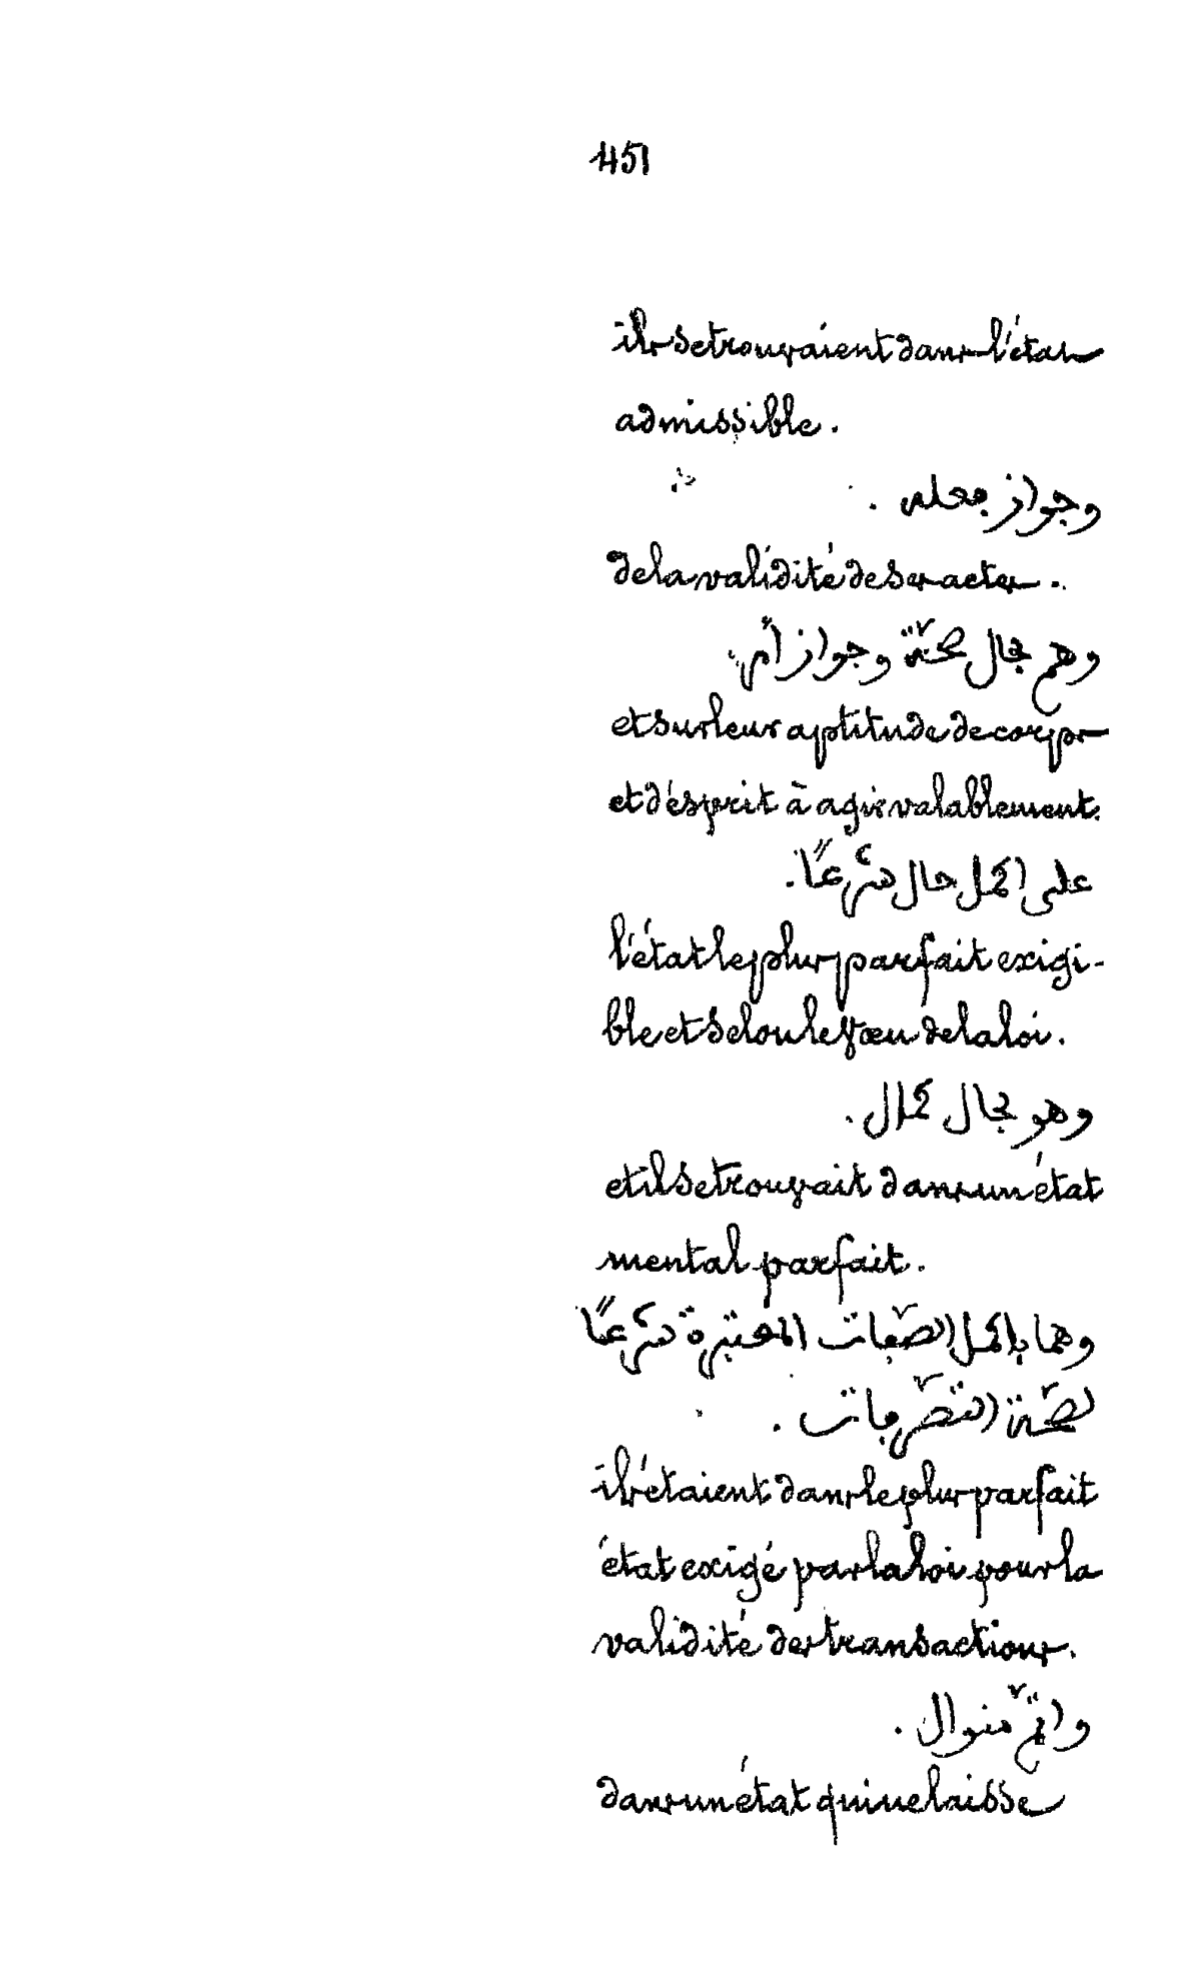 451
ils se trouvaient dans l'état
admissible.
وجواز فعله.
de la validité de ses actes.
وهم بحال صحّة وجواز أمر.
et sur leur aptitude de corps
et d'ésprit à agir valablement.
على اكمل حال شرعًا.
l'état le plus parfait exigi-
ble et selon le vœu de la loi.
وهو بحال كمال.
et il se trouvait dans un état
mental parfait.
وهما باكمل الصّفات المعتبرة شرعًا
لصّحة التصّرفات.
ils étaient dans le plus parfait
état exigé par la loi pour la
validité des transactions.
واتمّ منوال.
dans un état qui ne laisse